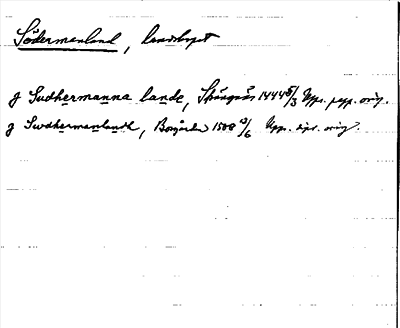 Södermanland, landskapet
J Sudhermanna lande, Strängnäs 1444 5/3 Upps. papp. orig.
J Swdhermanlandh, 1508 13/6 Upps. dipl. orig.